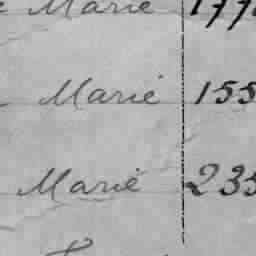 Marié 177
Marié 155
Marié 235